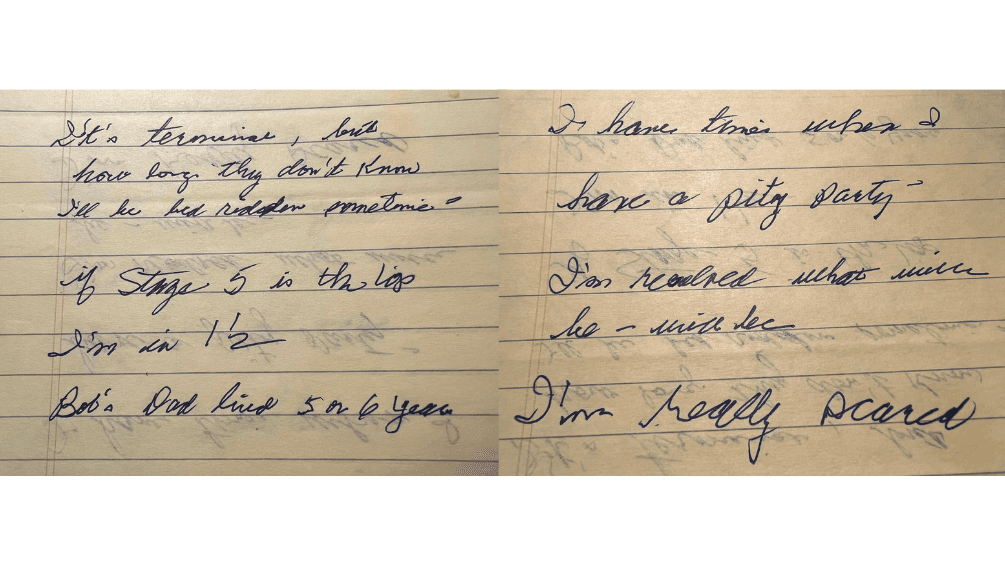 It's terminal, but
how long they don't know
I'll be bed ridden sometime -
if Stage 5 is the top
I'm in 1 1/2
Bob's Dad lived 5 or 6 years
I have times when I
have a pity party -
I'm resolved what will
be - will be
I'm really scared